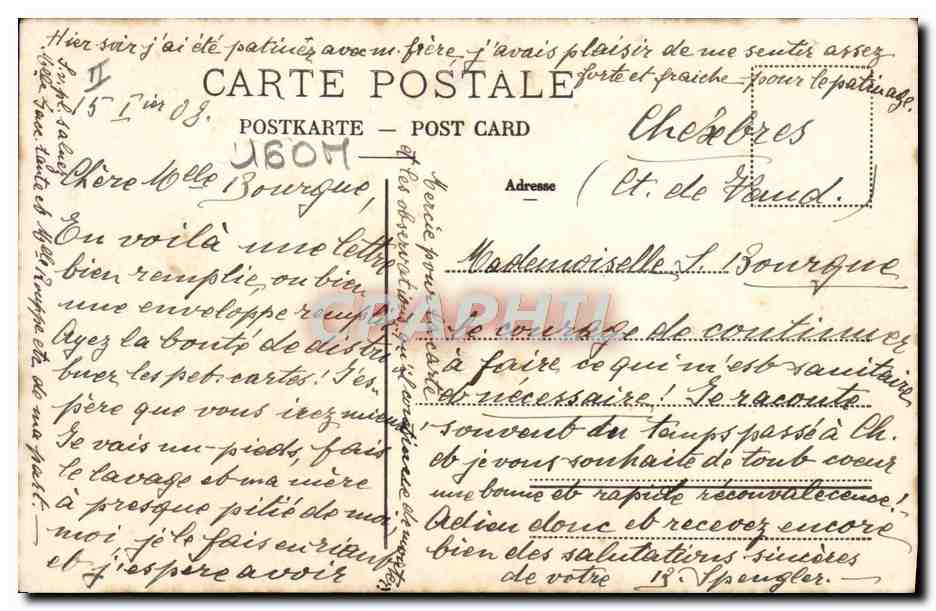 Hier soir j'ai été patinez avec m. frère, j'avais plaisir de me sentir assez
forte et fraiche pour le patinage.
CARTE POSTALE
II
15 Iier 08.
POSTKARTE — POST CARD
1607
Chexbres
Adresse
(Ct. de Vaud.)
Mademoiselle S. Bourque
Chère Melle Bourque,
En voilà une lettre
bien remplie, ou bien
une enveloppe remplie
Ayez la bonté de distri
buer les pet. cartes! J'es-
père que vous irez mieux
Je vais nu-pieds, fais
le lavage et ma mère
à presque pitié de moi
moi, je le fais en riant
et j'espère avoir
le courage de continuer
à faire ce qui m'est sanitaire
et nécessaire! Je raconte
souvent du temps passé à Ch.
et je vous souhaite de tout coeur
une bonne et rapide réconvalecence!
Adieu donc et recevez encore
bien des salutations sincères
de votre R. Spengler.
Mercie pour la carte
et les observations
S. v. pl. saluez
tante et de ma part.
CPAPHIL